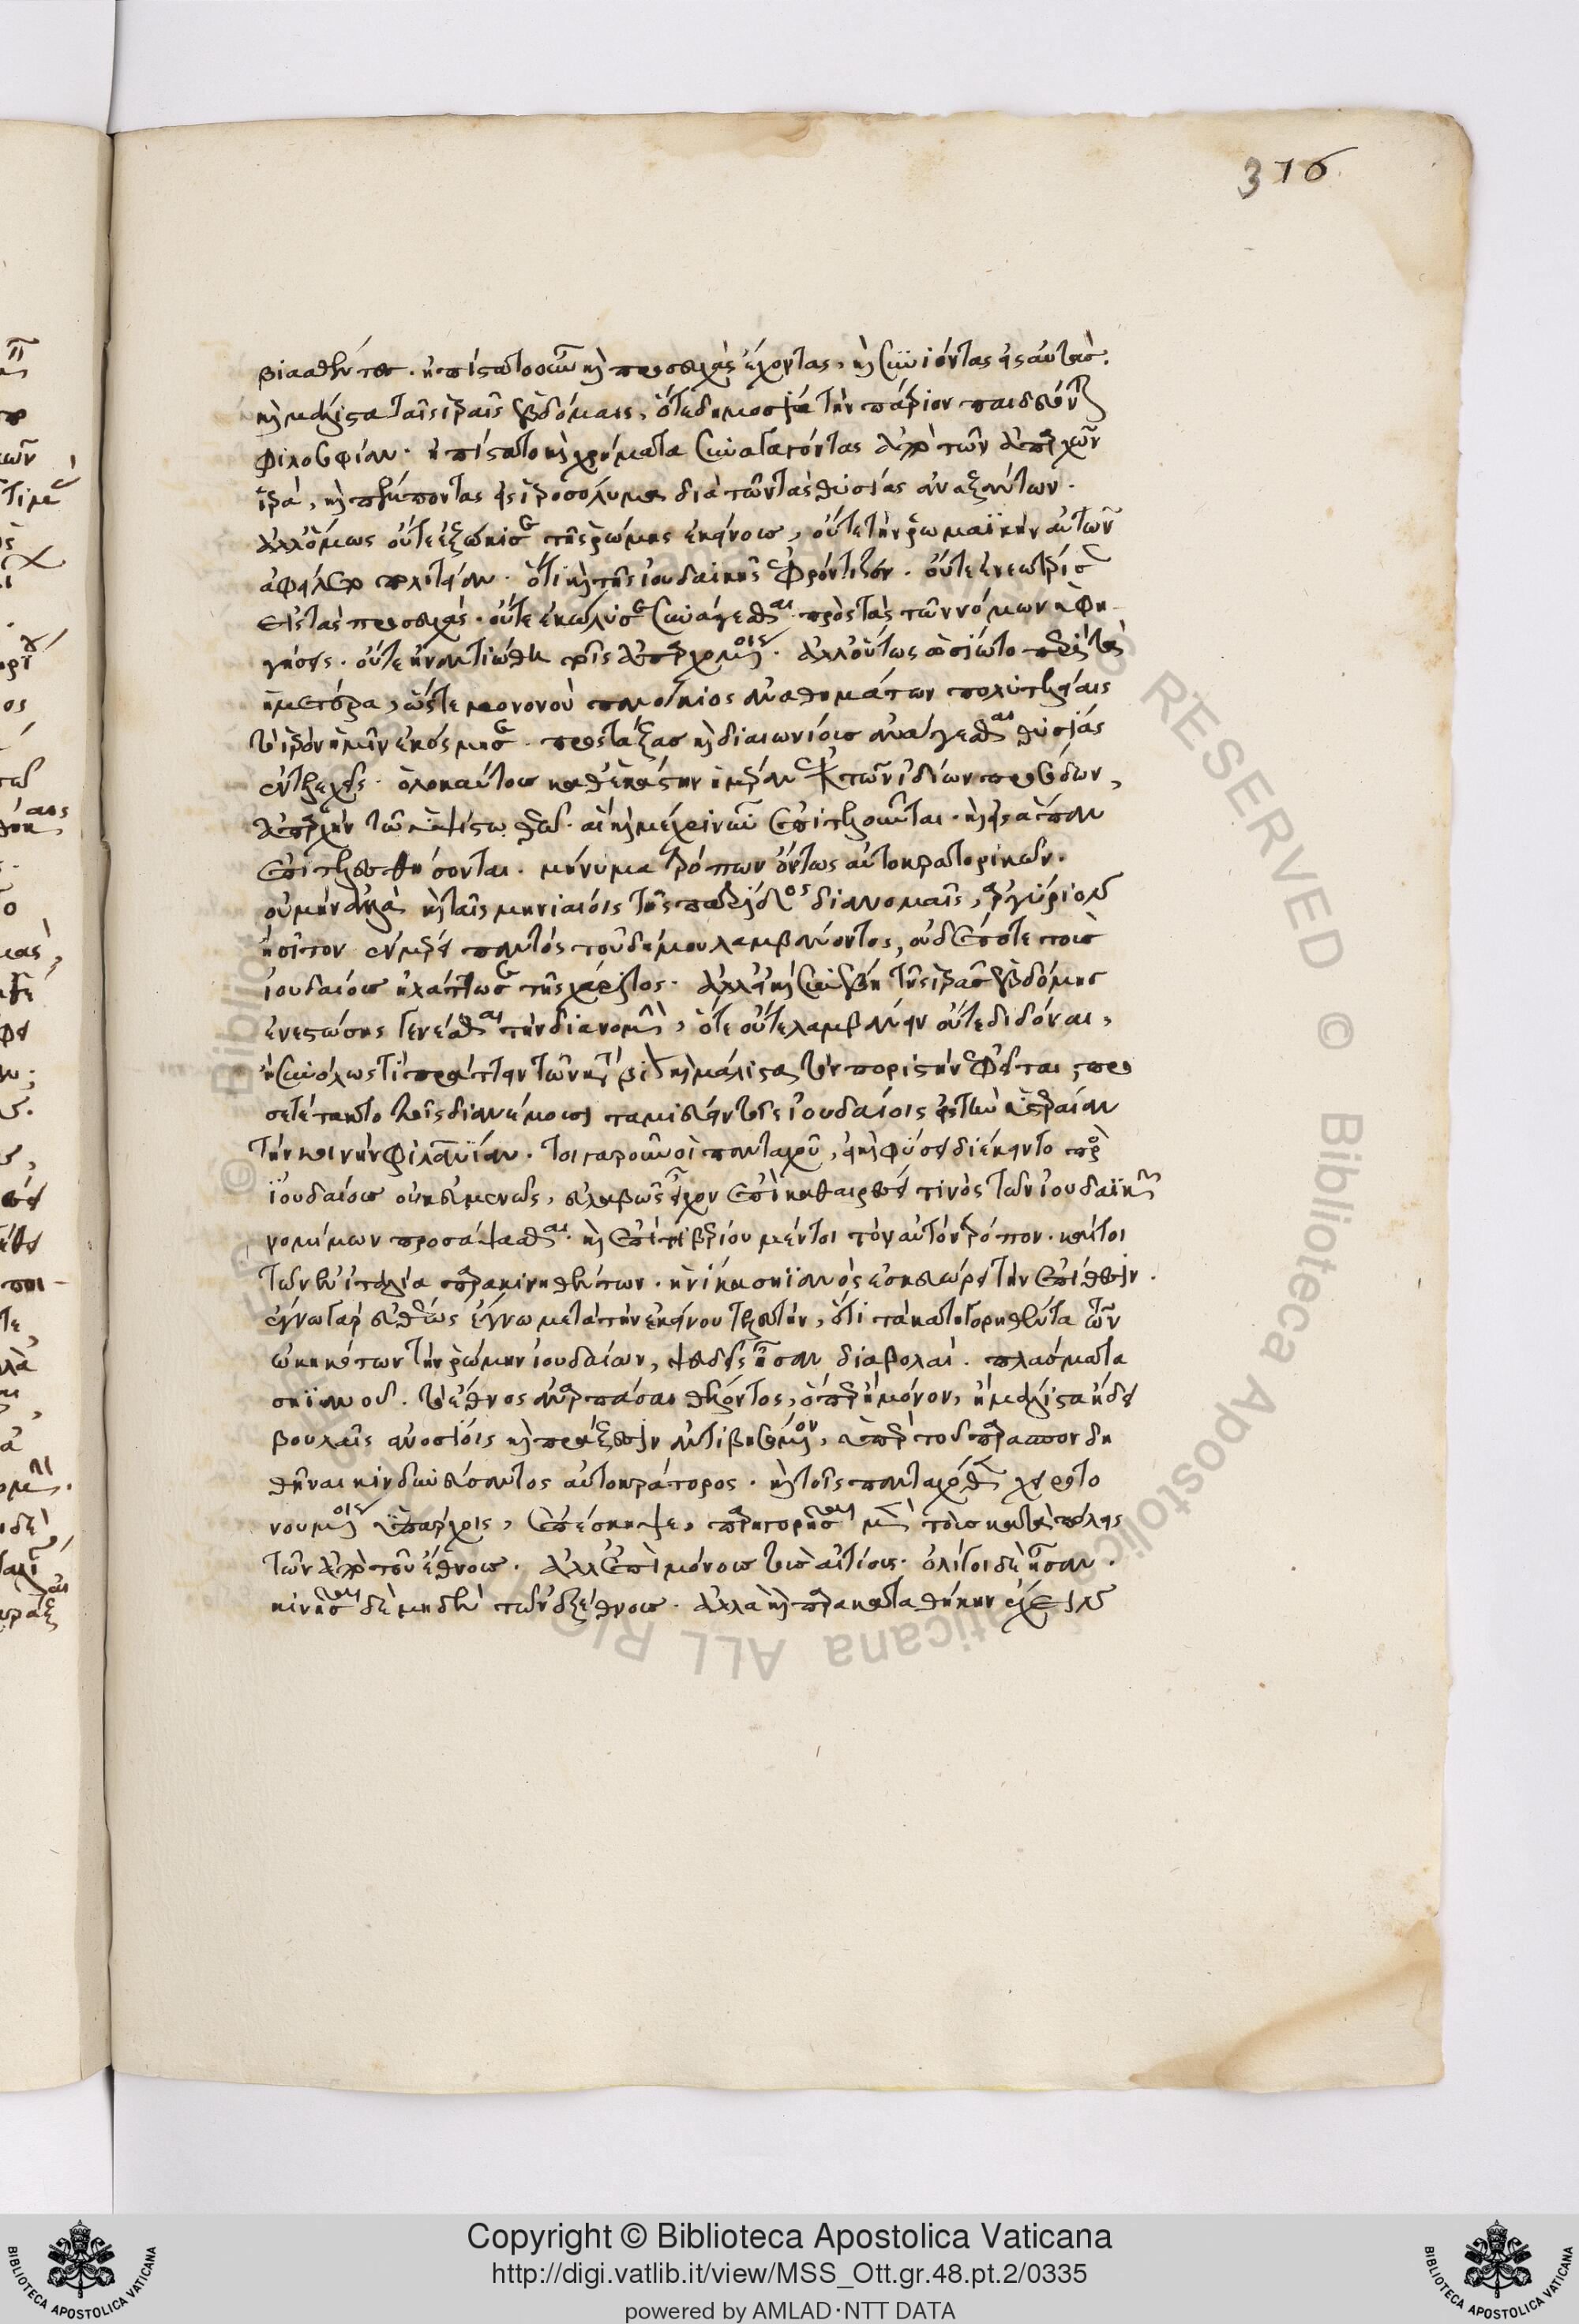 376
βιασθέντες. ἠπίστατο οὖν καὶ προσευχὰς ἔχοντας, καὶ συνιόντας εἰς αὐτὰς.
καὶ μάλιστα ταῖς ἱεραῖς ἑβδόμαις, ὅτε δημοσίᾳ τὴν πάτριον παιδεύονται
φιλοσοφίαν. ἠπίστατο καὶ χρήματα συνάγοντας ἀπὸ τῶν ἀπαρχῶν
ἱερά, καὶ πέμποντας εἰς ἱεροσόλυμα διὰ τῶν τὰς θυσίας ἀναξόντων.
ἀλλ' ὅμως οὔτε ἐξῴκισε τῆς ῥώμης ἐκείνους, οὔτε τὴν ῥωμαϊκὴν αὐτῶν
ἀφείλετο πολιτείαν. ὅτι καὶ τῆς ἰουδαικῆς ἐφρόντιζον. οὔτε ἐνεωτέρισεν
εἰς τὰς προσευχάς. οὔτε ἐκώλυσε συνάγεσθαι πρὸς τὰς τῶν νόμων ὑφη-
γήσεις. οὔτε ἠναντιώθη τοῖς ἀπαρχομένοις. ἀλλ' οὕτως ὡσίωτο περὶ τὰ
ἡμέτερα, ὥστε μονονοὺ πανοίκιος ἀναθημάτων πολυτελείαις
τὸ ἱερὸν ἡμῶν ἐκόσμησε. προστάξας καὶ διαιωνίους ἀνάγεσθαι θυσίας
ἐντελεχεῖς. ὁλοκαύτους καθ' ἑκάστην ἡμέραν ἐκ τῶν ἰδίων προσόδων,
ἀπαρχὴν τῷ ὑψίστῳ θεῷ. αἳ καὶ μέχρι νῦν ἐπιτελοῦνται. καὶ εἰς ἅπαν
ἐπιτελεσθήσονται. μήνυμα τρόπων ὄντως αὐτοκρατορικῶν.
οὐ μὴν ἀλλὰ καὶ ταῖς μηνιαίοις τῆς πατρίδος διανομαῖς, ἀργύριον
ἢ σῖτον ἐν μέρει παντὸς τοῦ δήμου λαμβάνοντος, οὐδέποτε τοὺς
ἰουδαίους ἠλάττωσε τῆς χάριτος. ἀλλ' εἰ καὶ συνέβη τῆς ἱερᾶς ἑβδόμης
ἐνεστώσης γενέσθαι τὴν διανομὴν, ὅτε οὔτε λαμβάνειν οὔτε διδόναι,
ἢ συνόλως τι πράττειν τῶν κατὰ βίον καὶ μάλιστα τὸν ποριστὴν ἐφεῖται, προ
σετέτακτο τοῖς διανέμουσι ταμιεύειν τοῖς ἰουδαίοις εἰς τὴν ὑστεραίαν
τὴν κοινὴν φιλανθρωπίαν. τοιγαροῦν οἱ πανταχοῦ, εἰ καὶ φύσει διέκειντο πρὸς
ἰουδαίους οὐκ εὐμενῶς, εὐλαβῶς εἶχον ἐπὶ καθαιρέσει τινὸς τῶν ἰουδαϊκῶν
νομίμων προσάψασθαι. καὶ ἐπὶ τιβερίου μέντοι τὸν αὐτὸν τρόπον. καίτοι
τῶν ἐν ἰταλίᾳ παρακινηθέντων. ἡνίκα σηϊανὸς ἐσκευώρει τὴν ἐπίθεσιν.
ἔγνω γὰρ εὐθέως ἔγνω μετὰ τὴν ἐκείνου τελευτὴν, ὅτι τὰ κατηγορηθέντα τῶν
ᾠκηκότων τὴν ῥώμην ἰουδαίων, ψευδεῖς ἦσαν διαβολαί. πλάσματα
σηϊανοῦ. τὸ ἔθνος ἀναρπάσαι θέλοντος, ὅπερ ἢ μόνον, ἢ μάλιστα ᾔδει
βουλαῖς ἀνοσίοις καὶ πράξεσιν ἀντιβησόμενον, ὑπὲρ τοῦ παρασπονδη
θῆναι κινδυνεύσαντος αὐτοκράτορος. καὶ τοῖς πανταχόθεν χειροτο
νουμένοις ὑπάρχοις, ἐπέσκηψε, παρηγορῆσαι μὲν τοὺς κατὰ πόλεις
τῶν ἀπὸ τοῦ ἔθνους. ἀλλ' ἐπὶ μόνους τοὺς αἰτίους. ὀλίγοι δὲ ἦσαν.
κινῆσαι δὲ μηδὲν τῶν ἐξ ἔθους. ἀλλὰ καὶ παρακαταθήκην ἔχειν
Copyright © Biblioteca Apostolica Vaticana
http://digi.vatlib.it/view/MSS_Ott.gr.48.pt.2/0335
powered by AMLAD·NTT DATA